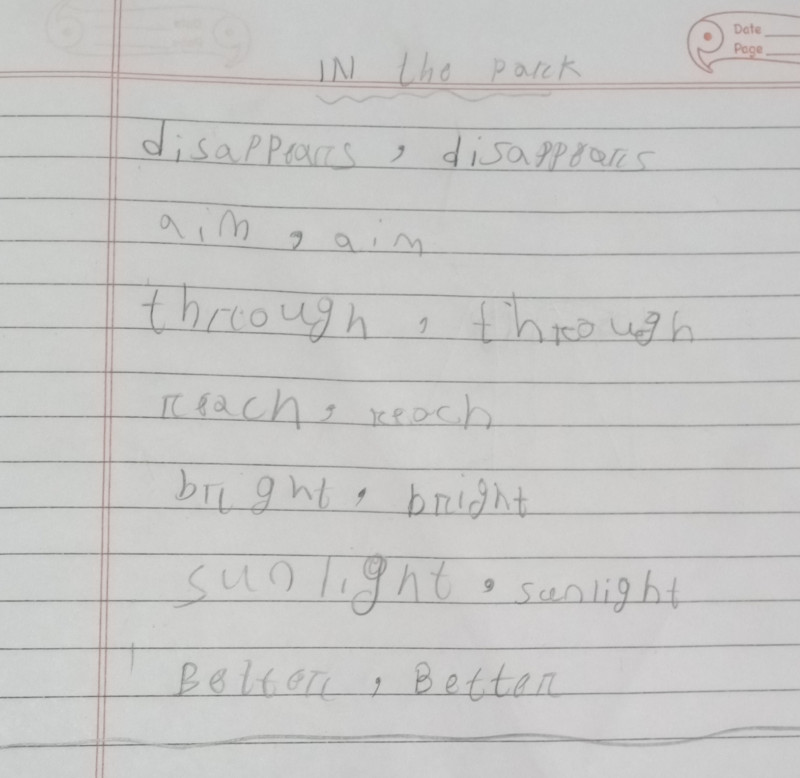 Date
Page
IN the park
disappears, disappears
aim, aim
through, through
reach, reach
bright, bright
sunlight, sunlight
Better, Better